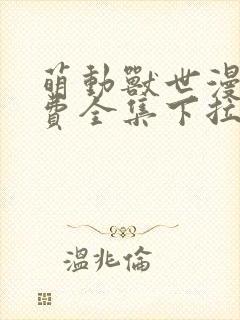 萌動獸世漫
費全集下拉
溫兆倫